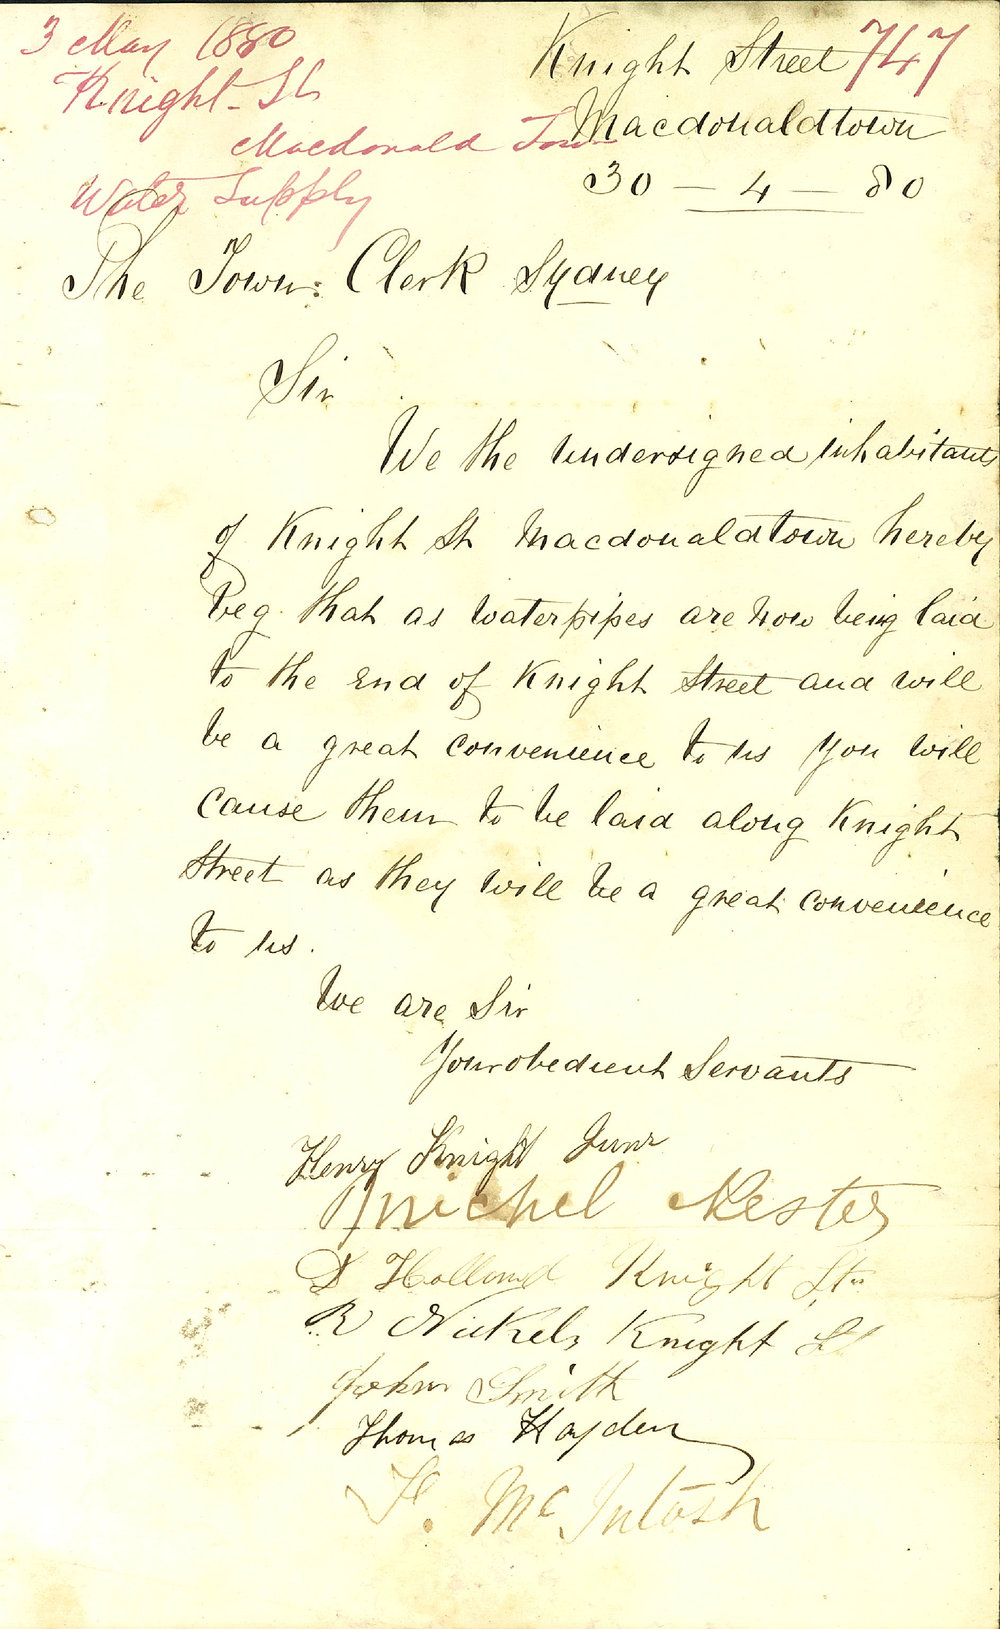 3 May 1880
Knight St
Macdonald Town
Water Supply
747
Knight Street
Macdonaldtown
30 - 4 - 80
The Town: Clerk Sydney
Sir
We the undersigned inhabitants
of Knight St Macdonaldtown hereby
beg that as waterpipes are now being laid
to the end of Knight Street and will
be a great convenience to us you will
cause them to be laid along Knight
Street as they will be a great convenience
to us.
We are Sir
Your obedient Servants
Henry Knight Junr
Michel Nester
D Holland Knight St
R Nickels Knight St
John Smith
Thomas Hayden
F. McIntosh